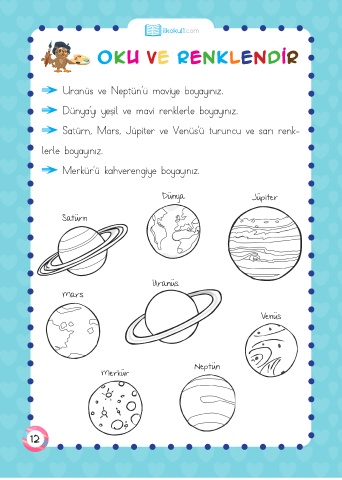 ilkokul1.com
OKU VE RENKLENDİR
Uranüs ve Neptün'ü maviye boyayınız.
Dünya'yı yeşil ve mavi renklerle boyayınız.
Satürn, Mars, Jüpiter ve Venüs'ü turuncu ve sarı renk-
lerle boyayınız.
Merkür'ü kahverengiye boyayınız.
Dünya
Jüpiter
Satürn
Uranüs
Mars
Venüs
Neptün
Merkür
12